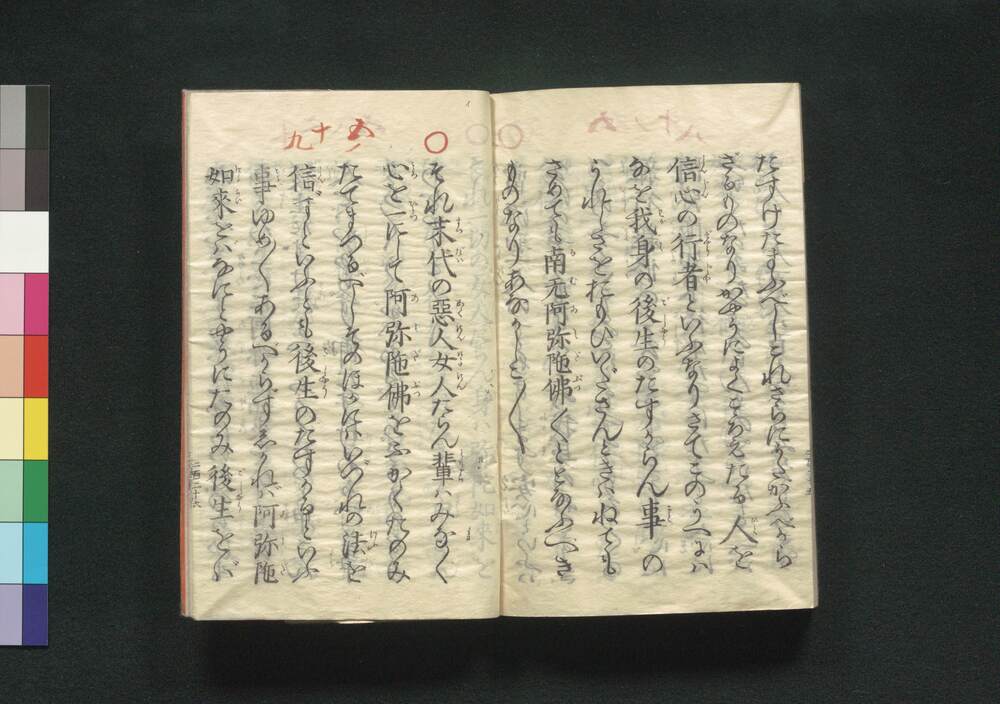 たすけたまふべしこれさらにうたがふべから
ざるものなりかやうによくこゝろえたる人を
信心の行者といふなりさてこのうへには
なを我身の後生のたすからん事の
うれしさをおもひいださんときはねても
さめても南无阿弥陁佛〳〵ととなふべき
ものなりあなかしこ〳〵
○
五ノ十九
それ末代の惡人女人たらん輩ハみな〳〵
心を一にして阿弥陁佛をふかくたのみ
たてまつるべしそのほかにハいづれの法を
信ずといふとも後生のたすかるといふ
事ゆめ〳〵あるべからずしかれバ阿弥陁
如來をバなにとやうにたのみ後生をバ
二百二十六